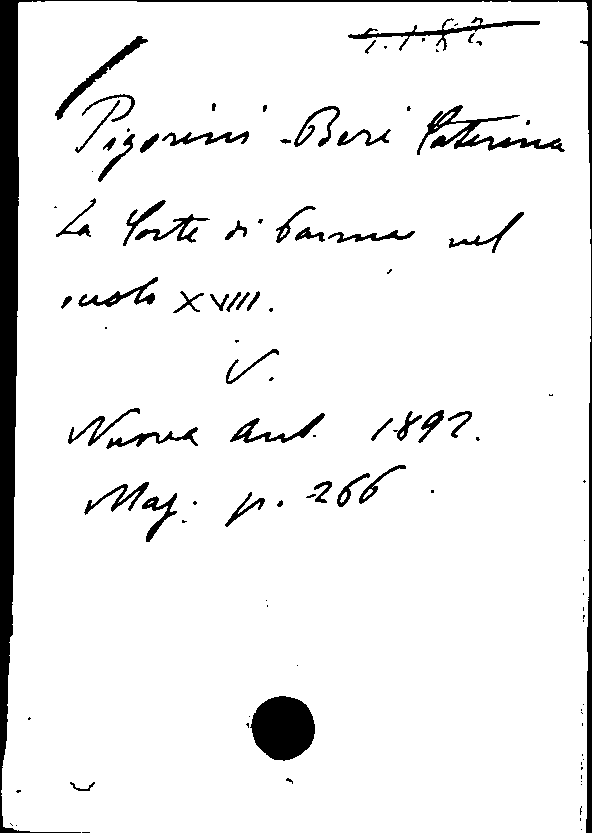 2.1.82
Pigorini-Beri Caterina
La Corte di Parma nel
secolo XVIII.
V.
Nuova Ant. 1892.
Mag. p. 266.